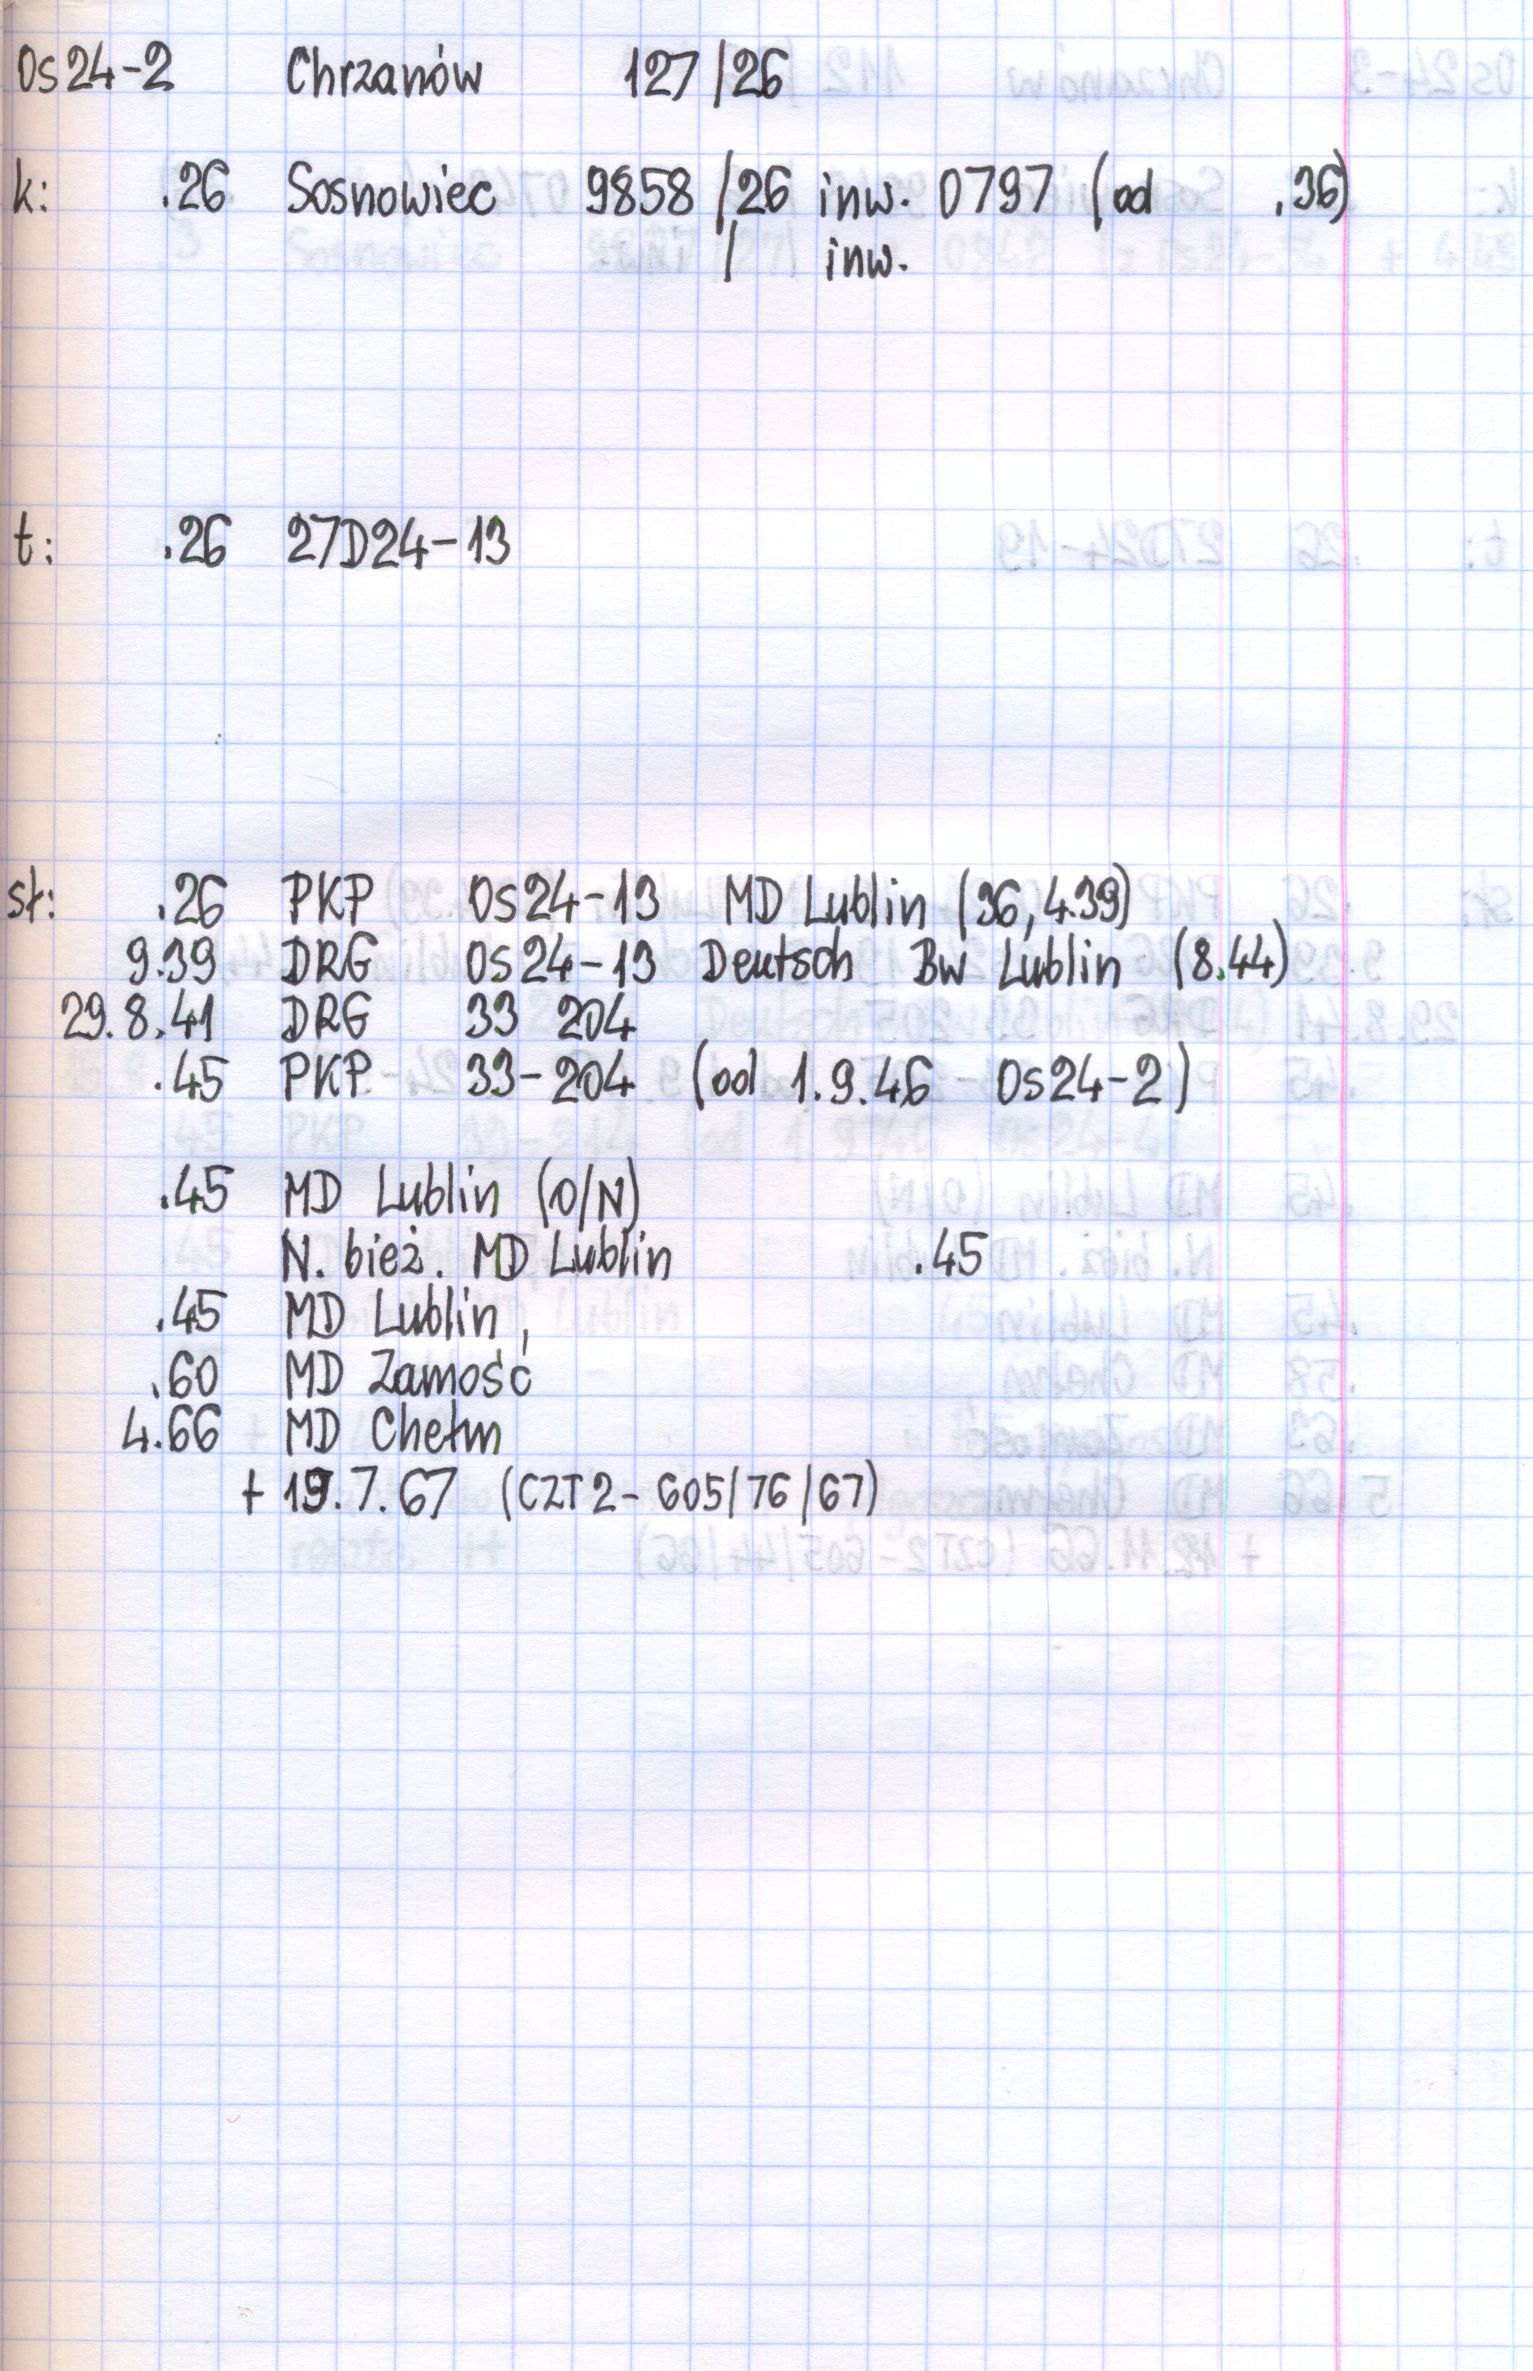 Os24-2 Chrzanów 127/26
k: .26 Sosnowiec 9858/26 inw. 0797 (od .36)
/ inw.
t: .26 27D24-13
st: .26 PKP Os24-13 MD Lublin (36, 4.39)
9.39 DRG Os24-13 Deutsch Bw Lublin (8.44)
29.8.41 DRG 33 204
.45 PKP 33-204 (od 1.9.46 Os24-2)
.45 MD Lublin (O/N)
N. bież. MD Lublin .45
.45 MD Lublin,
.60 MD Zamość
4.66 MD Chełm
+ 19.7.67 (CZT2-605/76/67)